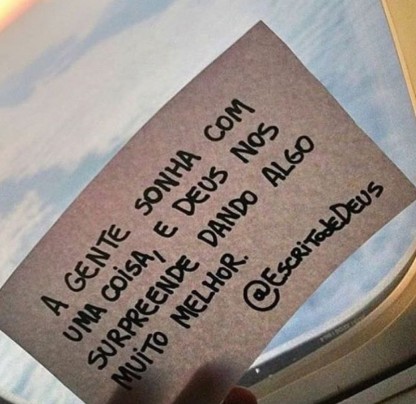 A GENTE SONHA COM
UMA COISA, E DEUS NOS
SURPREENDE DANDO ALGO
MUITO MELHOR.
@ESCRITOSDEDEUS